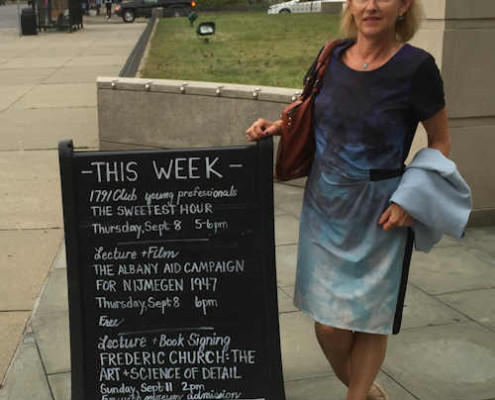 - THIS WEEK -
1791 Club young professionals
THE SWEETEST HOUR
Thursday, Sept 8 5-6pm
Lecture + Film
THE ALBANY AID CAMPAIGN
FOR NIJMEGEN 1947
Thursday, Sept 8 6pm
Free
Lecture + Book Signing
FREDERIC CHURCH: THE
ART + SCIENCE OF DETAIL
Sunday, Sept 11 2pm
museum admission